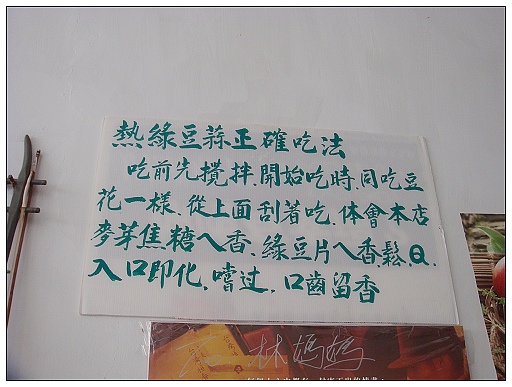 熱綠豆蒜正確吃法
吃前先攪拌.開始吃時.同吃豆
花一樣.從上面刮著吃.体會本店
麥芽焦糖ㄟ香.綠豆片ㄟ香.鬆.Q.
入口即化.嚐过.口齒留香
林媽媽